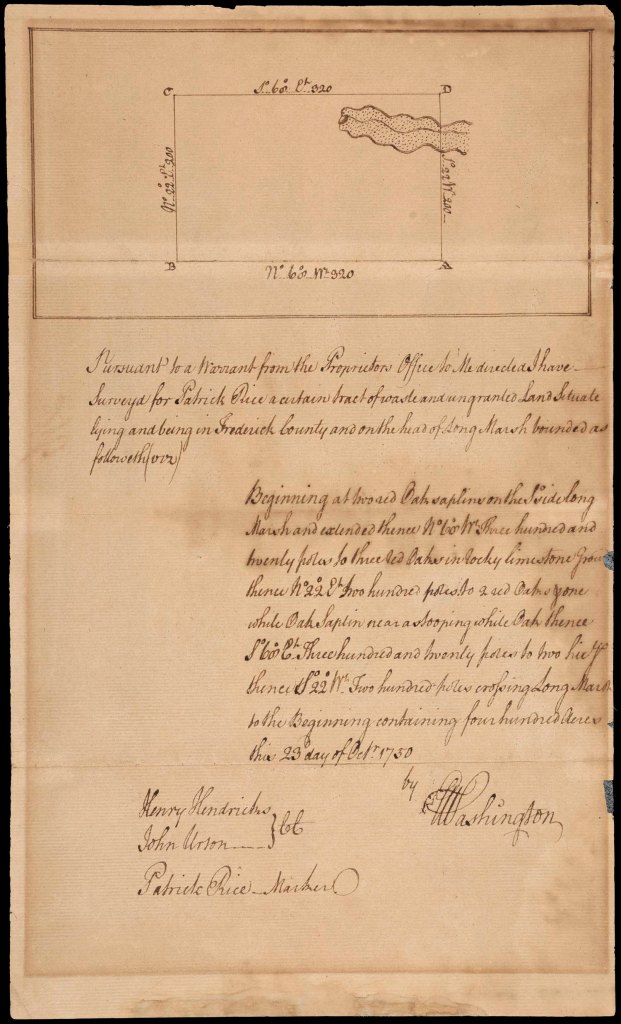 C
So. 68° Et. 320
D
No. 22° Et. 200
So. 22° Wt. 200
B
No. 68° Wt. 320
A
Pursuant to a Warrant from the Proprietors Office to Me directed I have
Surveyd for Patrick Rice a certain tract of waste and ungranted Land Situate
lying and being in Frederick County and on the head of Long Marsh bounded as
followeth (viz)
Beginning at two red Oak saplins on the So. side Long
Marsh and extended thence No. 68° Wt. Three hundred and
twenty poles to three red Oaks in rocky limestone
thence No. 22° Et. two hundred poles to 2 red Oaks & one
white Oak Saplin near a stooping white Oak thence
So. 68° Et. Three hundred and twenty poles to two
thence So. 22° Wt. Two hundred poles crossing Long Marsh
to the Beginning containing four hundred Acres
this 23d day of Octr. 1750
by
GWashington
Henry Hendricks
John Urton } CC
Patrick Rice — Marker